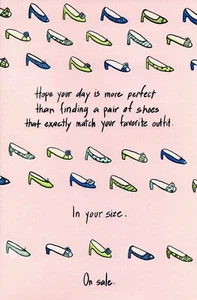 Hope your day is more perfect
than finding a pair of shoes
that exactly match your favorite outfit.
In your size.
On sale.